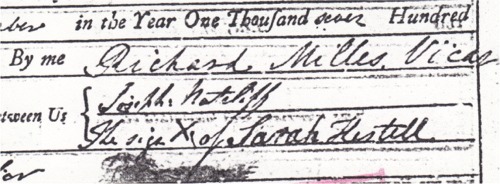 in the Year One Thousand seven Hundred
By me Richard Milles Vicar
etween Us { Joseph Natcliff
The sign X of Sarah Hestell